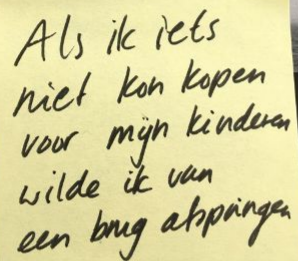 Als ik iets
niet kon kopen
voor mijn kinderen
wilde ik van
een brug afspringen